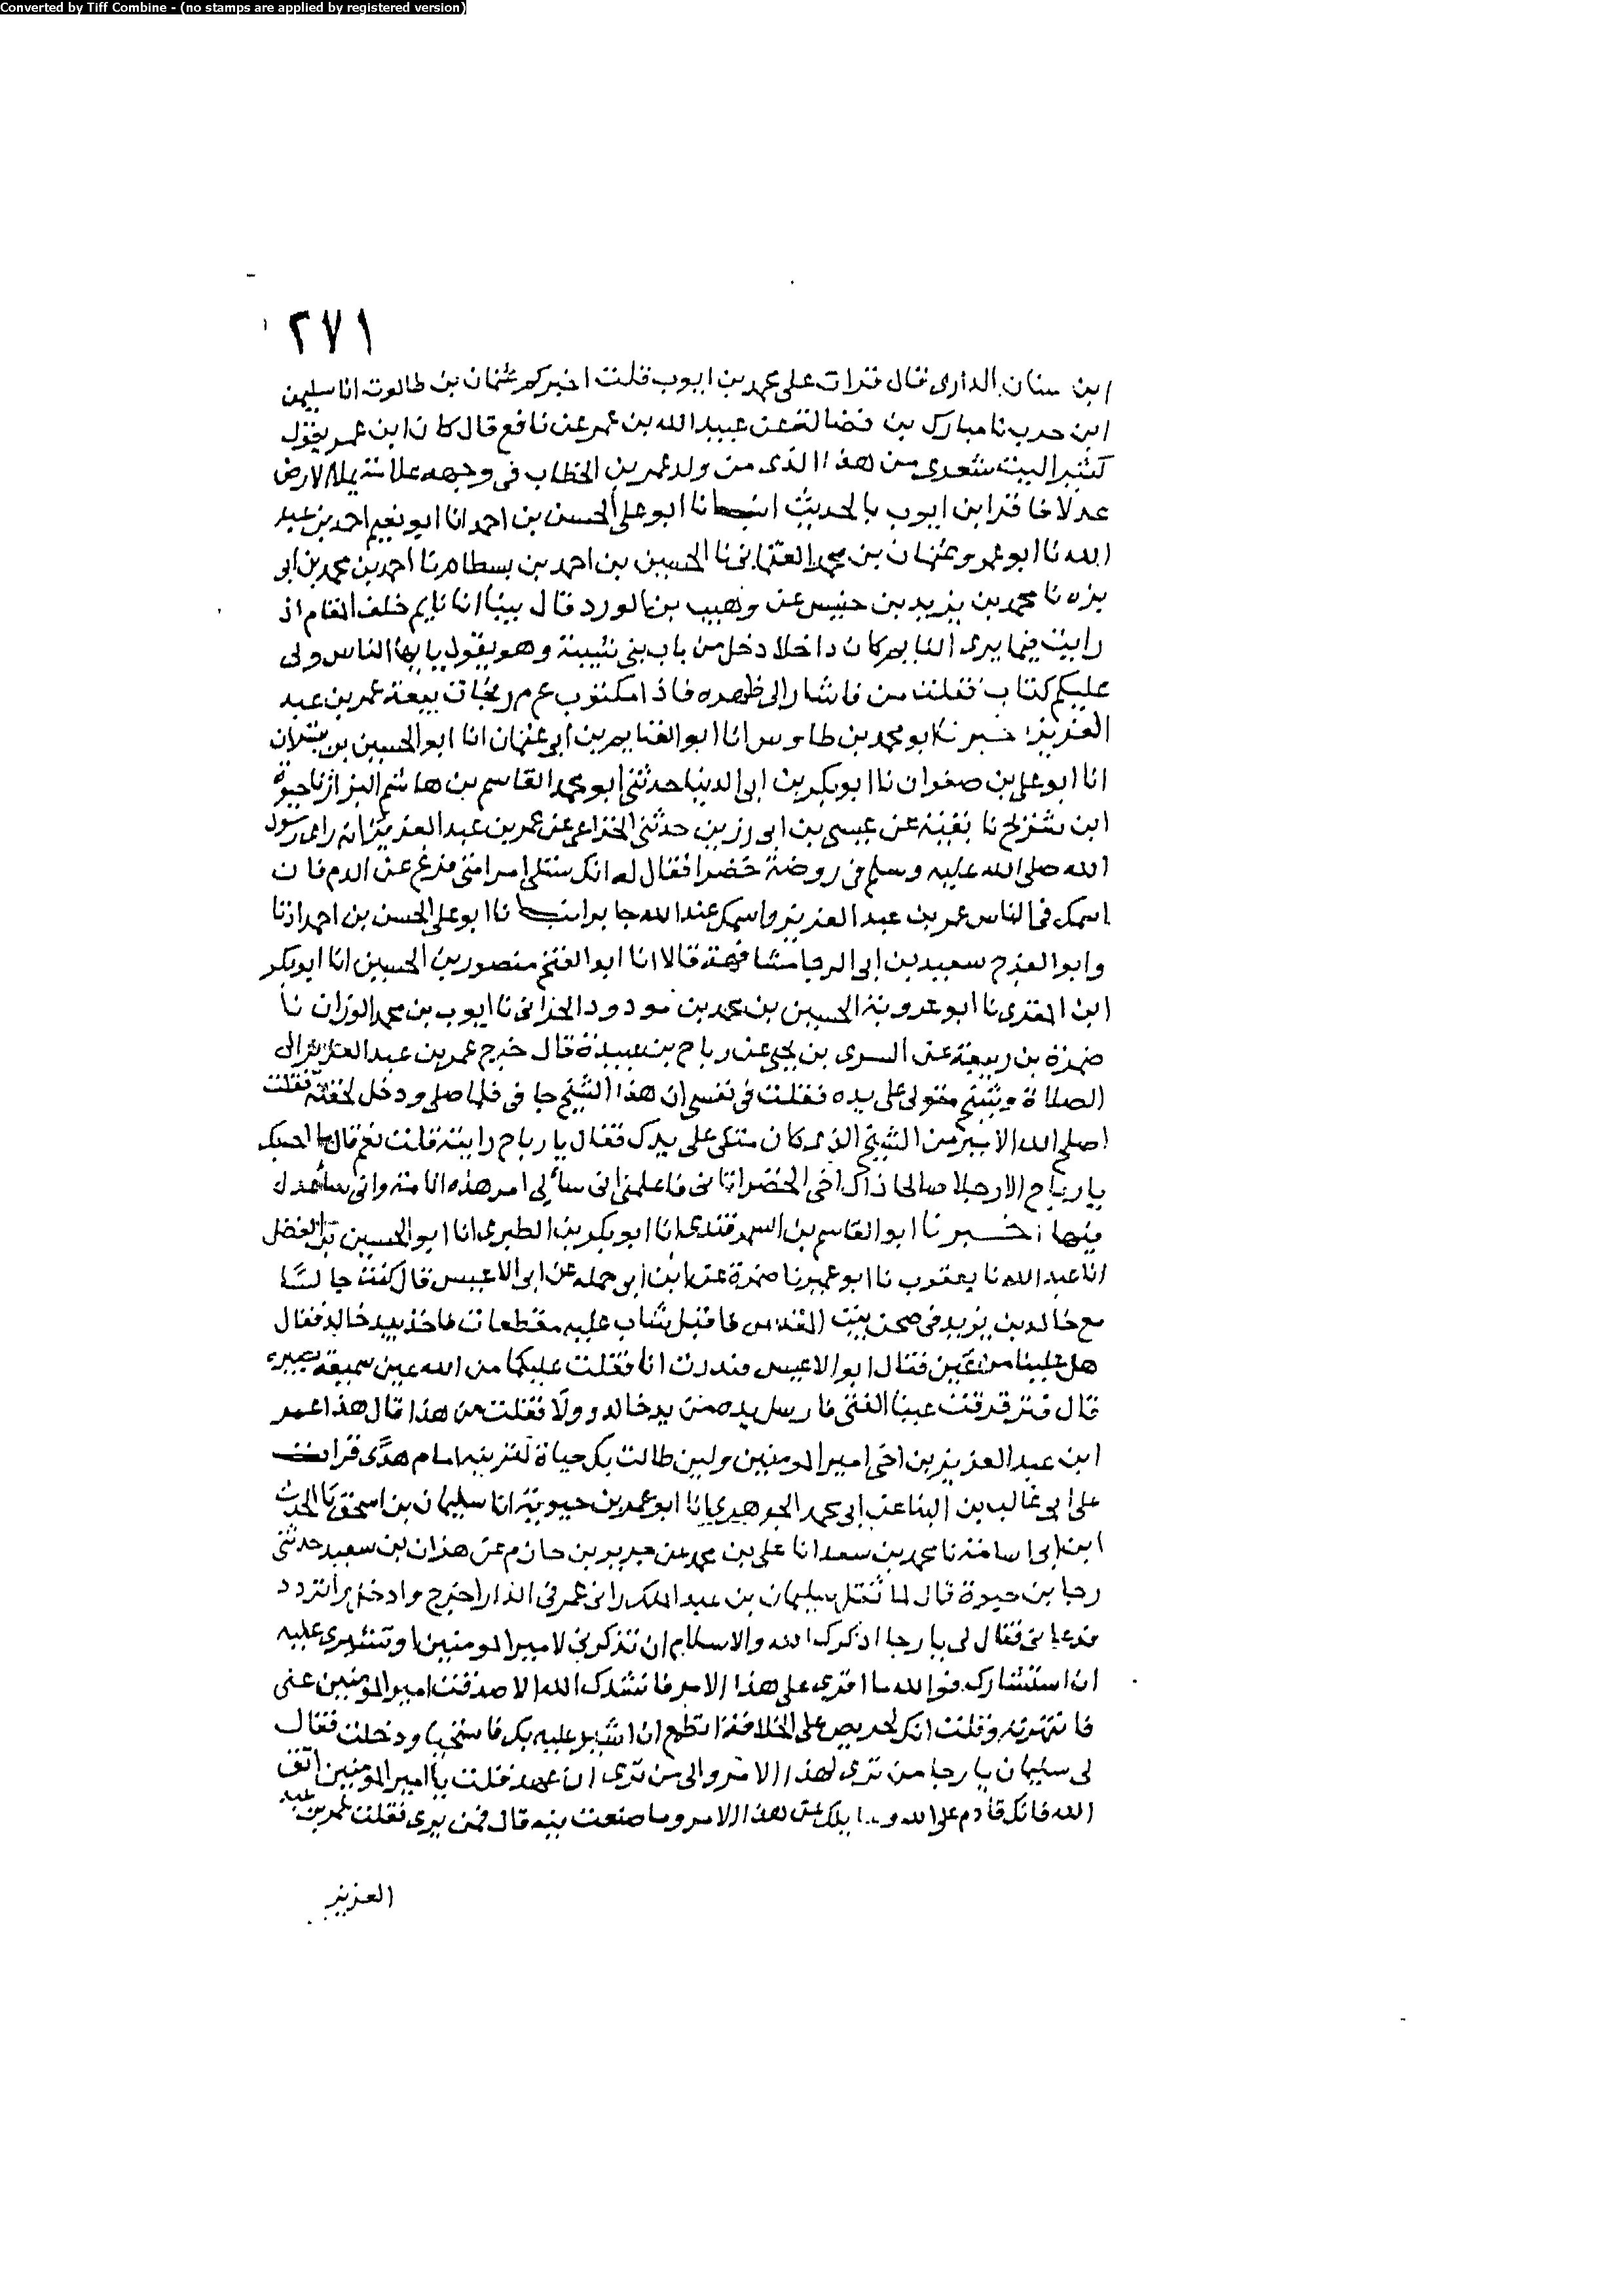 Converted by Tiff Combine - (no stamps are applied by registered version)
٢٧١
ابن سنان الدارى قال قرات على محمد بن ايوب قلت اخبركم عثمان بن طالوت انا سليمن
ابن حرب نا مبارك بن فضالة عن عبيد الله بن عمر عن نافع قال كان ابن عمر يقول
كثيرا ليت شعرى من هذا الذى من ولد عمر بن الخطاب فى وجهه علامة يملا الارض
عدلا فاقرا ابن ايوب بالحديث انبانا ابو على الحسن بن احمد انا ابو نعيم احمد بن عبد
الله نا ابو عمرو عثمان بن محمد العثمانى نا الحسين بن احمد بن بسطام نا احمد بن محمد بن ابى
بزه نا محمد بن يزيد بن خنيس عن وهيب بن الورد قال بينا انا نايم خلف المقام اذ
رايت فيما يرى النايم كان داخلا دخل من باب بنى شيبة وهو يقول يا يها الناس ولى
عليكم كتاب فقلت من فاشار الى ظهره فاذا مكتوب ع م ر فجات بيعة عمر بن عبد
العزيز اخبرنا ابو محمد بن طاوس انا ابو الغنايم بن ابى عثمان انا ابو الحسين بن بشران
انا ابو على بن صفوان نا ابو بكر بن ابى الدنيا حدثنى ابو محمد القاسم بن هاشم البزاز نا حيوة
ابن شريح نا بقية عن عيسى بن ابى رزين حدثنى الخزاعى عن عمر بن عبد العزيز انه راى رسول
الله صلى الله عليه وسلم فى روضة خضرا فقال له انك ستلى امر امتى فزع عن الدم فان
اسمك فى الناس عمر بن عبد العزيز واسمك عند الله جابر انبانا ابو على الحسن بن احمد اذنا
وابو الفرج سعيد بن ابى الرجا مشافهة قالا انا ابو الفتح منصور بن الحسين انا ابو بكر
ابن المقرى نا ابو عروبة الحسين بن محمد بن مودود الحرانى نا ايوب بن محمد الوزان نا
ضمرة بن ربيعة عن السرى بن يحيى عن رباح بن عبيدة قال خرج عمر بن عبد العزيز الى
الصلاة وشيخ متوكى على يده فقلت فى نفسى ان هذا الشيخ جافى فلما صلى ودخل لحقته فقلت
اصلح الله الامير من الشيخ الذى كان متكى على يدك فقال يا رباح رايته قلت نعم قال ما احسبك
يا رباح الا رجلا صالحا ذاك اخى الخضر اتانى فاعلمنى انى سالى امر هذه الامة وانى ساعدل
فيها اخبرنا ابو القاسم بن السمرقندى انا ابو بكر بن الطبرى انا ابو الحسين بن الفضل
انا عبد الله نا يعقوب نا ابو عمير نا ضمرة عن ابن ابى حمله عن ابى الاعيس قال كنت جالسا
مع خالد بن يزيد فى صحن بيت المقدس فاقبل شاب عليه مقطعات فاخذ بيد خالد فقال
هل علينا من عين فقال ابو الاعيس فبدرت انا فقلت عليكما من الله عين سميعة بصيرة
قال فترقرقت عينا الفتى فارسل يده من يد خالد وولا فقلت من هذا قال هذا عمر
ابن عبد العزيز بن اخى امير المومنين ولين طالت بك حياة لترينه امام هدى قرات
على ابى غالب بن البنا عن ابى محمد الجوهرى انا ابو عمر بن حيوية انا سليمان بن اسحق نا الحرث
ابن ابى اسامة نا محمد بن سعد انا على بن محمد عن جرير بن حازم عن هزان بن سعيد حدثنى
رجا بن حيوة قال لما ثقل سليمان بن عبد الملك رانى عمر فى الدار اخرج وادخل واتردد
فدعانى فقال لى يا رجا اذكرك الله والاسلام ان تذكرنى لامير المومنين او تشيرى عليه
ان استشارك فوالله ما اقوى على هذا الامر فانشدك الله الا صرفت امير المومنين عنى
فانتهرته وقلت انك لحريص على الخلافة اتطمع ان اشير عليه بك فاستحيا ودخلت فقال
لى سليمان يا رجا من ترى لهذا الامر والى من ترى ان اعهد فقلت يا امير المومنين اتق
الله فانك قادم على الله و سايلك عن هذا الامر وما صنعت فيه قال فمن ترى فقلت عمر بن عبد
العزيز